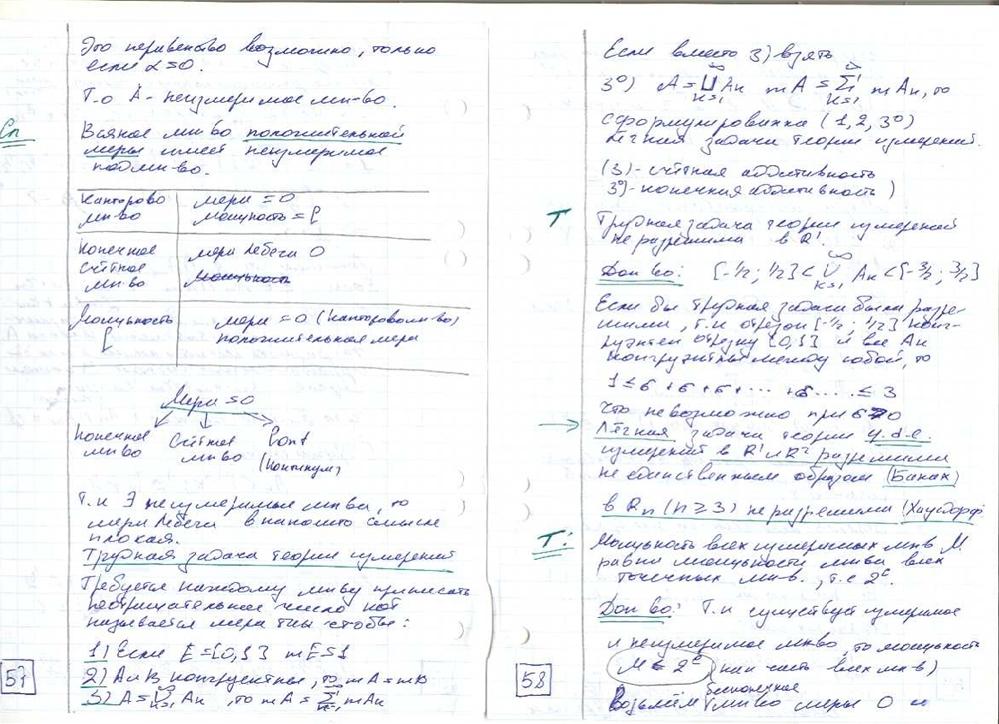 Это неравенство возможно, только
если α=0.
Т.о A - неизмеримое мн-во.
Сл
Всякое мн-во положительной
меры имеет неизмеримое
подмн-во.
Канторово мн-во | мера = 0 мощность = C
Конечное счётное мн-во | мера Лебега 0 мощность
Мощность C | мера = 0 (канторово мн-во) положительная мера
Мера = 0
Конечное мн-во Счётное мн-во Cont (континуум)
Т.к ∃ неизмеримые мн-ва, то
мера Лебега в каком-то смысле
плохая.
Трудная задача теории измерений
Требуется каждому мн-ву приписать
неотрицательное число кот
называется мера так чтобы:
1) Если E=[0,1] mE=1
2) A и B конгруентные, то mA=mB
3) A=⋃Aк, то mA=∑ mAк
к=1 к=1
57
Если вместо 3) взять
3⁰) A=⋃Aк mA=∑ mAк, то
к=1 к=1
сформулирована (1,2,3⁰)
Лёгкая задача теории измерений.
(3)- счётная аддитивность
3⁰- конечная аддитивность)
Т
Трудная задача теории измерений
не разрешима в R¹.
Док-во: [-1/2; 1/2] ⊂ ⋃ Aк ⊂ [-3/2; 3/2]
к=1
Если бы трудная задача была разре-
шима, т.к отрезок [-1/2; 1/2] конг-
руэнтен отрезку [0,1] и все Aк
конгруэнтны между собой, то
1 ≤ б + б + б + ··· + б ... ≤ 3
Что невозможно при б≥0
Лёгкая задача теории
измерений в R¹ и R² разрешима
не единственным образом (Банах)
в Rn (n ≥ 3) не разрешима (Хаусдорф)
Т:
Мощность всех измеримых мн-в M
равна мощности мн-ва всех
точечных мн-в., т.е 2ᶜ.
Док-во: Т.к существует измеримое
и неизмеримое мн-во, то мощность
M ≤ 2ᶜ (как часть всех мн-в)
Возьмём бесконечное мн-во меры 0 и
58